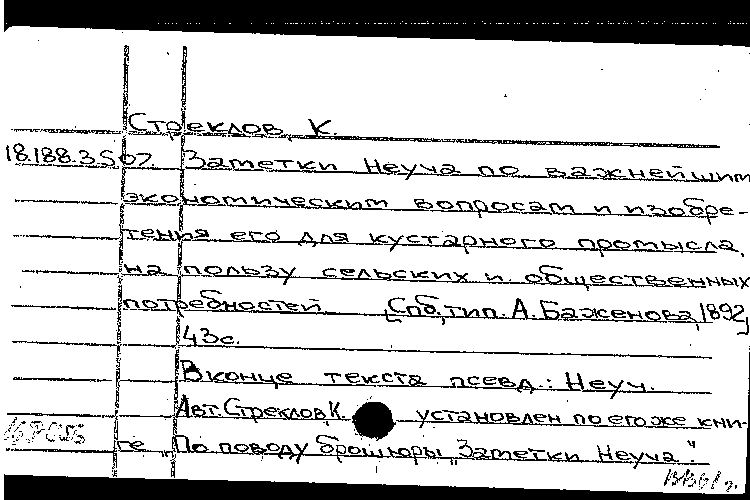 Стреклов, К.
18.188.3.507. Заметки Неуча по важнейшим
экономическим вопросам и изобре-
тения его для кустарного промысла,
на пользу сельских и общественных
потребностей. [Спб, тип. А. Баженова, 1892]
43с.
В конце текста псевд.: Неуч.
Авт. Стреклов, К. установлен по его же кни-
ге „По поводу брошюры „Заметки Неуча".